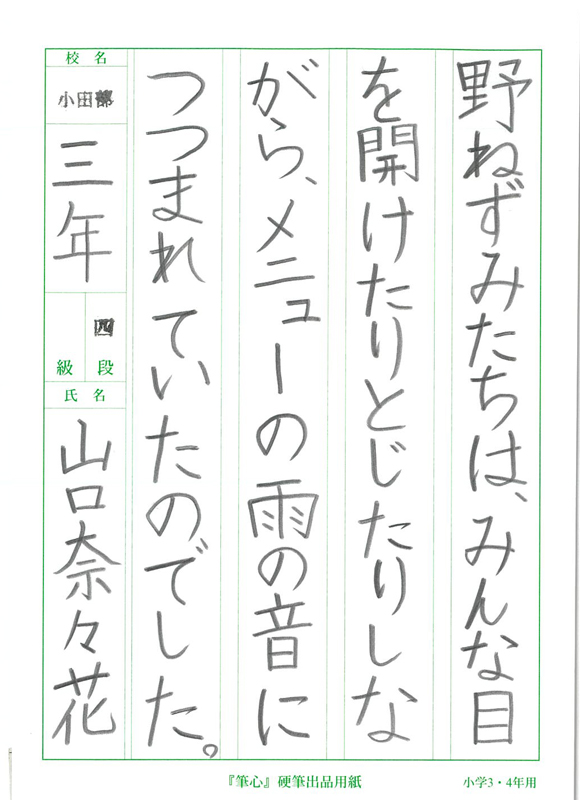 野ねずみたちは、みんな目
を開けたりとじたりしな
がら、メニューの雨の音に
つつまれていたのでした。
校名
小田部
三年
四段
級
氏名
山口奈々花
『筆心』硬筆出品用紙
小学3・4年用